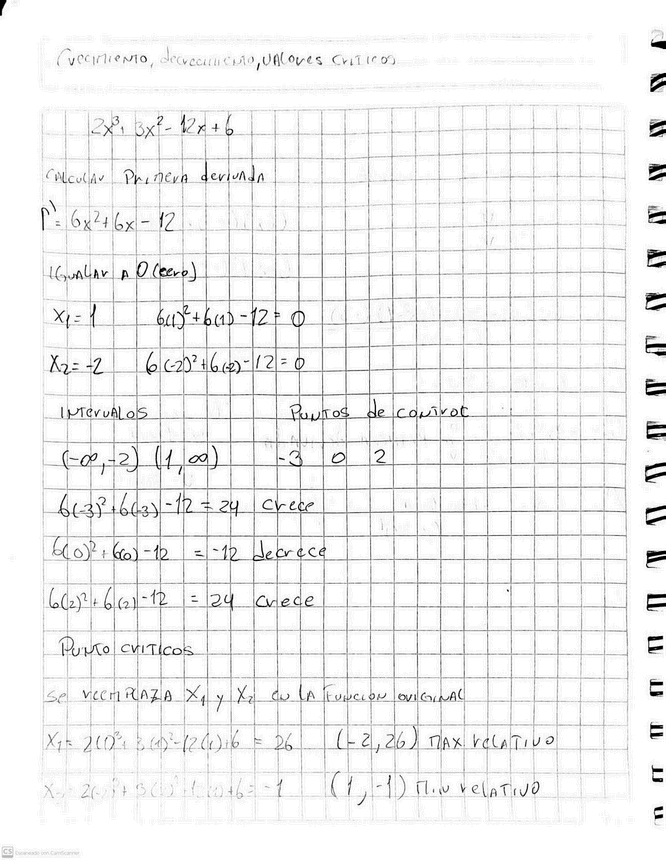 Crecimiento, decrecimiento, valores criticos
2x³+ 3x² - 12x + 6
Calcular Primera derivada
P' = 6x² + 6x - 12
Igualar a 0 (cero)
X₁ = 1 6(1)² + 6(1) - 12 = 0
X₂ = -2 6(-2)² + 6(-2) - 12 = 0
Intervalos Puntos de control
(-∞, -2) (1, ∞) -3 0 2
6(-3)² + 6(-3) - 12 = 24 crece
6(0)² + 6(0) - 12 = -12 decrece
6(2)² + 6(2) - 12 = 24 crece
Punto criticos
Se reemplaza X₁ y X₂ en la funcion original
X₁ = 2(1)³ + 3(1)² - 12(1) + 6 = 26 (-2, 26) Max relativo
+ 6 = -1 (1, -1) Min relativo
CS Escaneado con CamScanner